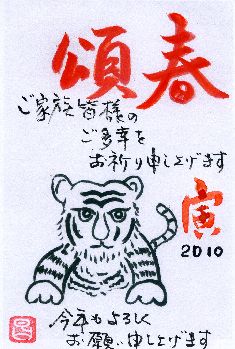 頌春
ご家族皆様の
ご多幸を
お祈り申し上げます
寅
2010
今年もよろしく
お願い申し上げます